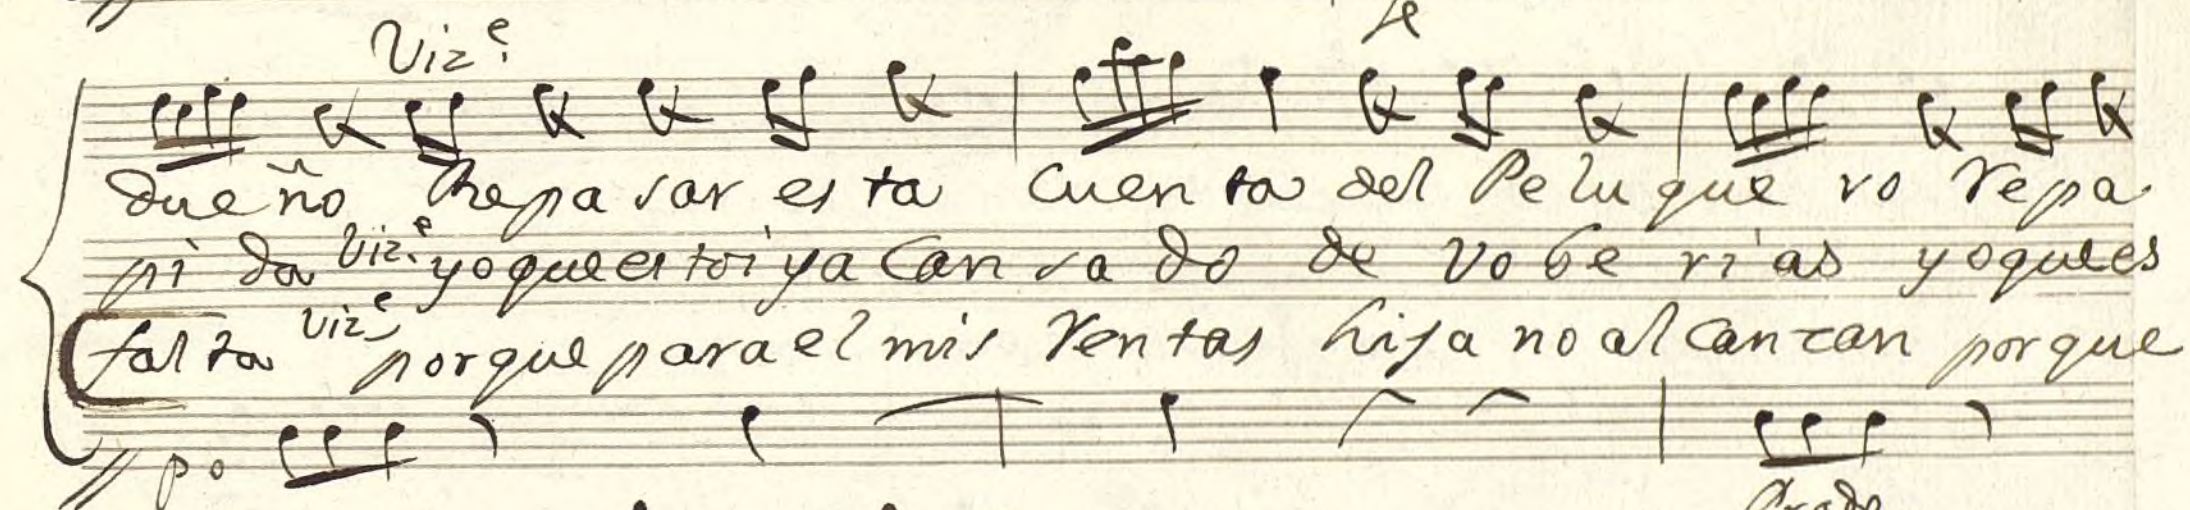 Vizᵉ.
due ño Repa sar es ta Cuen ta del Pe lu que ro repa
pi da Vizᵉ. yo que es toi ya Can sa do de vo be rias yo que es
fal ta Vizᵉ porque para el mis Rentas hija no alcanzan porque
po